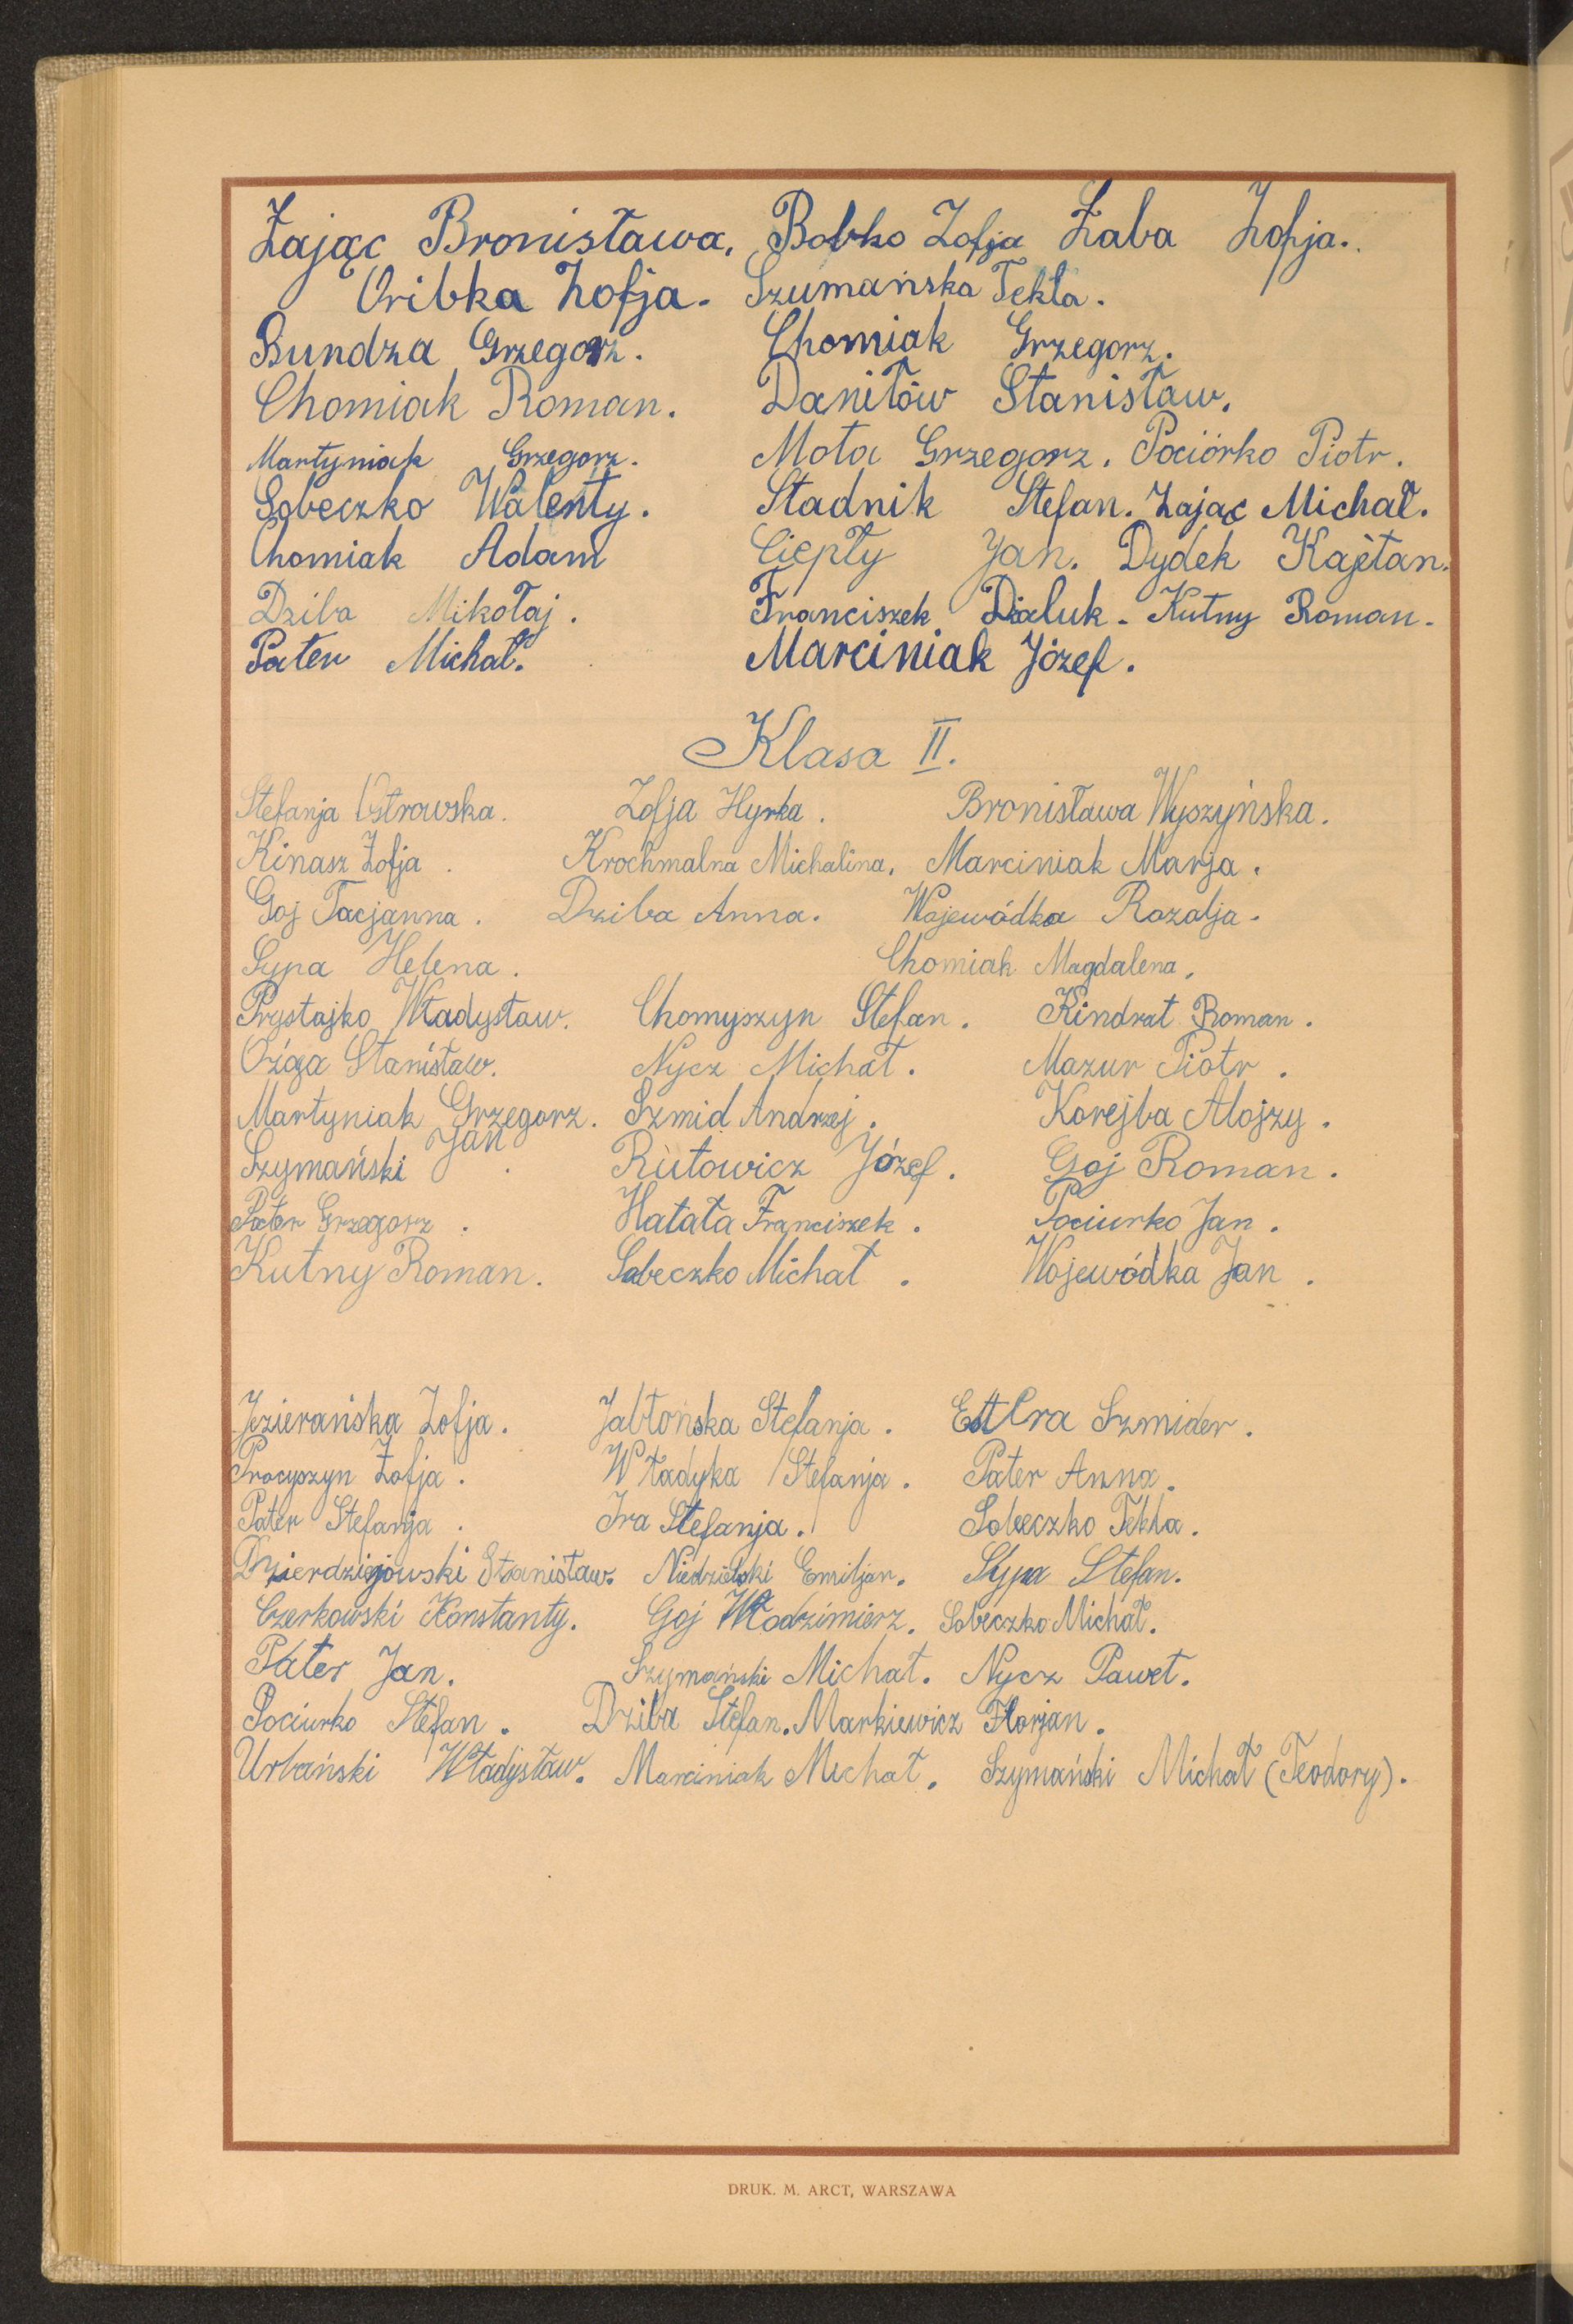 Zając Bronisława. Bobko Zofja Żaba Zofja.
Oribka Zofja. Szumańska Tekla.
Bundza Grzegorz. Chomiak Grzegorz.
Chomiak Roman. Daniłów Stanisław.
Martyniak Grzegorz. Mota Grzegorz. Pociórko Piotr.
Sobeczko Walenty. Stadnik Stefan. Zając Michał.
Chomiak Adam Ciepły Jan. Dydek Kajetan.
Dziba Mikołaj. Franciszek Kutny Roman.
Pater Michał. Marciniak Józef.
Klasa II.
Stefanja Ostrowska. Zofja Hyrka. Bronisława Wyszyńska.
Kinasz Zofja. Krochmalna Michalina. Marciniak Marja.
Goj Tacjanna. Dziba Anna. Wojewódka Rozalja.
Sypa Helena. Chomiak Magdalena.
Prystajko Władysław. Chomyszyn Stefan. Kindrat Roman.
Oziga Stanisław. Nycz Michał. Mazur Piotr.
Martyniak Grzegorz. Szmid Andrzej. Korejba Alojzy.
Szymański Jan. Rutowicz Józef. Goj Roman.
Pater Grzegorz. Hałata Franciszek. Pociurko Jan.
Kutny Roman. Sobeczko Michał. Wojewódka Jan.
Jezierańska Zofja. Jabłońska Stefanja. Szmider.
Procyszyn Zofja. Władyka Stefanja. Pater Anna.
Pater Stefanja. Ira Stefanja. Sobeczko Tekla.
Dzierdziejowski Stanisław. Niedzielski Emiljan. Sypa Stefan.
Czerkowski Konstanty. Goj Włodzimierz. Sobeczko Michał.
Pater Jan. Szymański Michał. Nycz Paweł.
Pociurko Stefan. Dziba Stefan. Markiewicz Florjan.
Urbański Władysław. Marciniak Michał. Szymański Michał (Teodory).
DRUK. M. ARCT, WARSZAWA